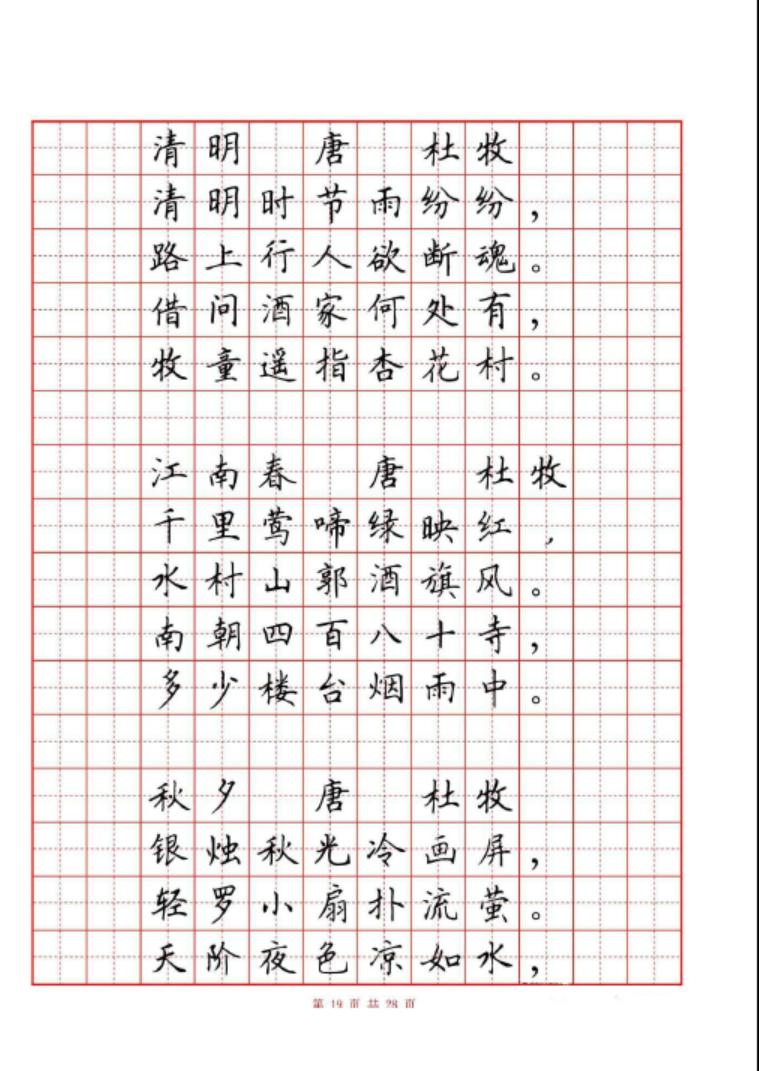 清明 唐 杜牧
清明时节雨纷纷，
路上行人欲断魂。
借问酒家何处有，
牧童遥指杏花村。
江南春 唐 杜牧
千里莺啼绿映红，
水村山郭酒旗风。
南朝四百八十寺，
多少楼台烟雨中。
秋夕 唐 杜牧
银烛秋光冷画屏，
轻罗小扇扑流萤。
天阶夜色凉如水，
第 19 页 共 28 页